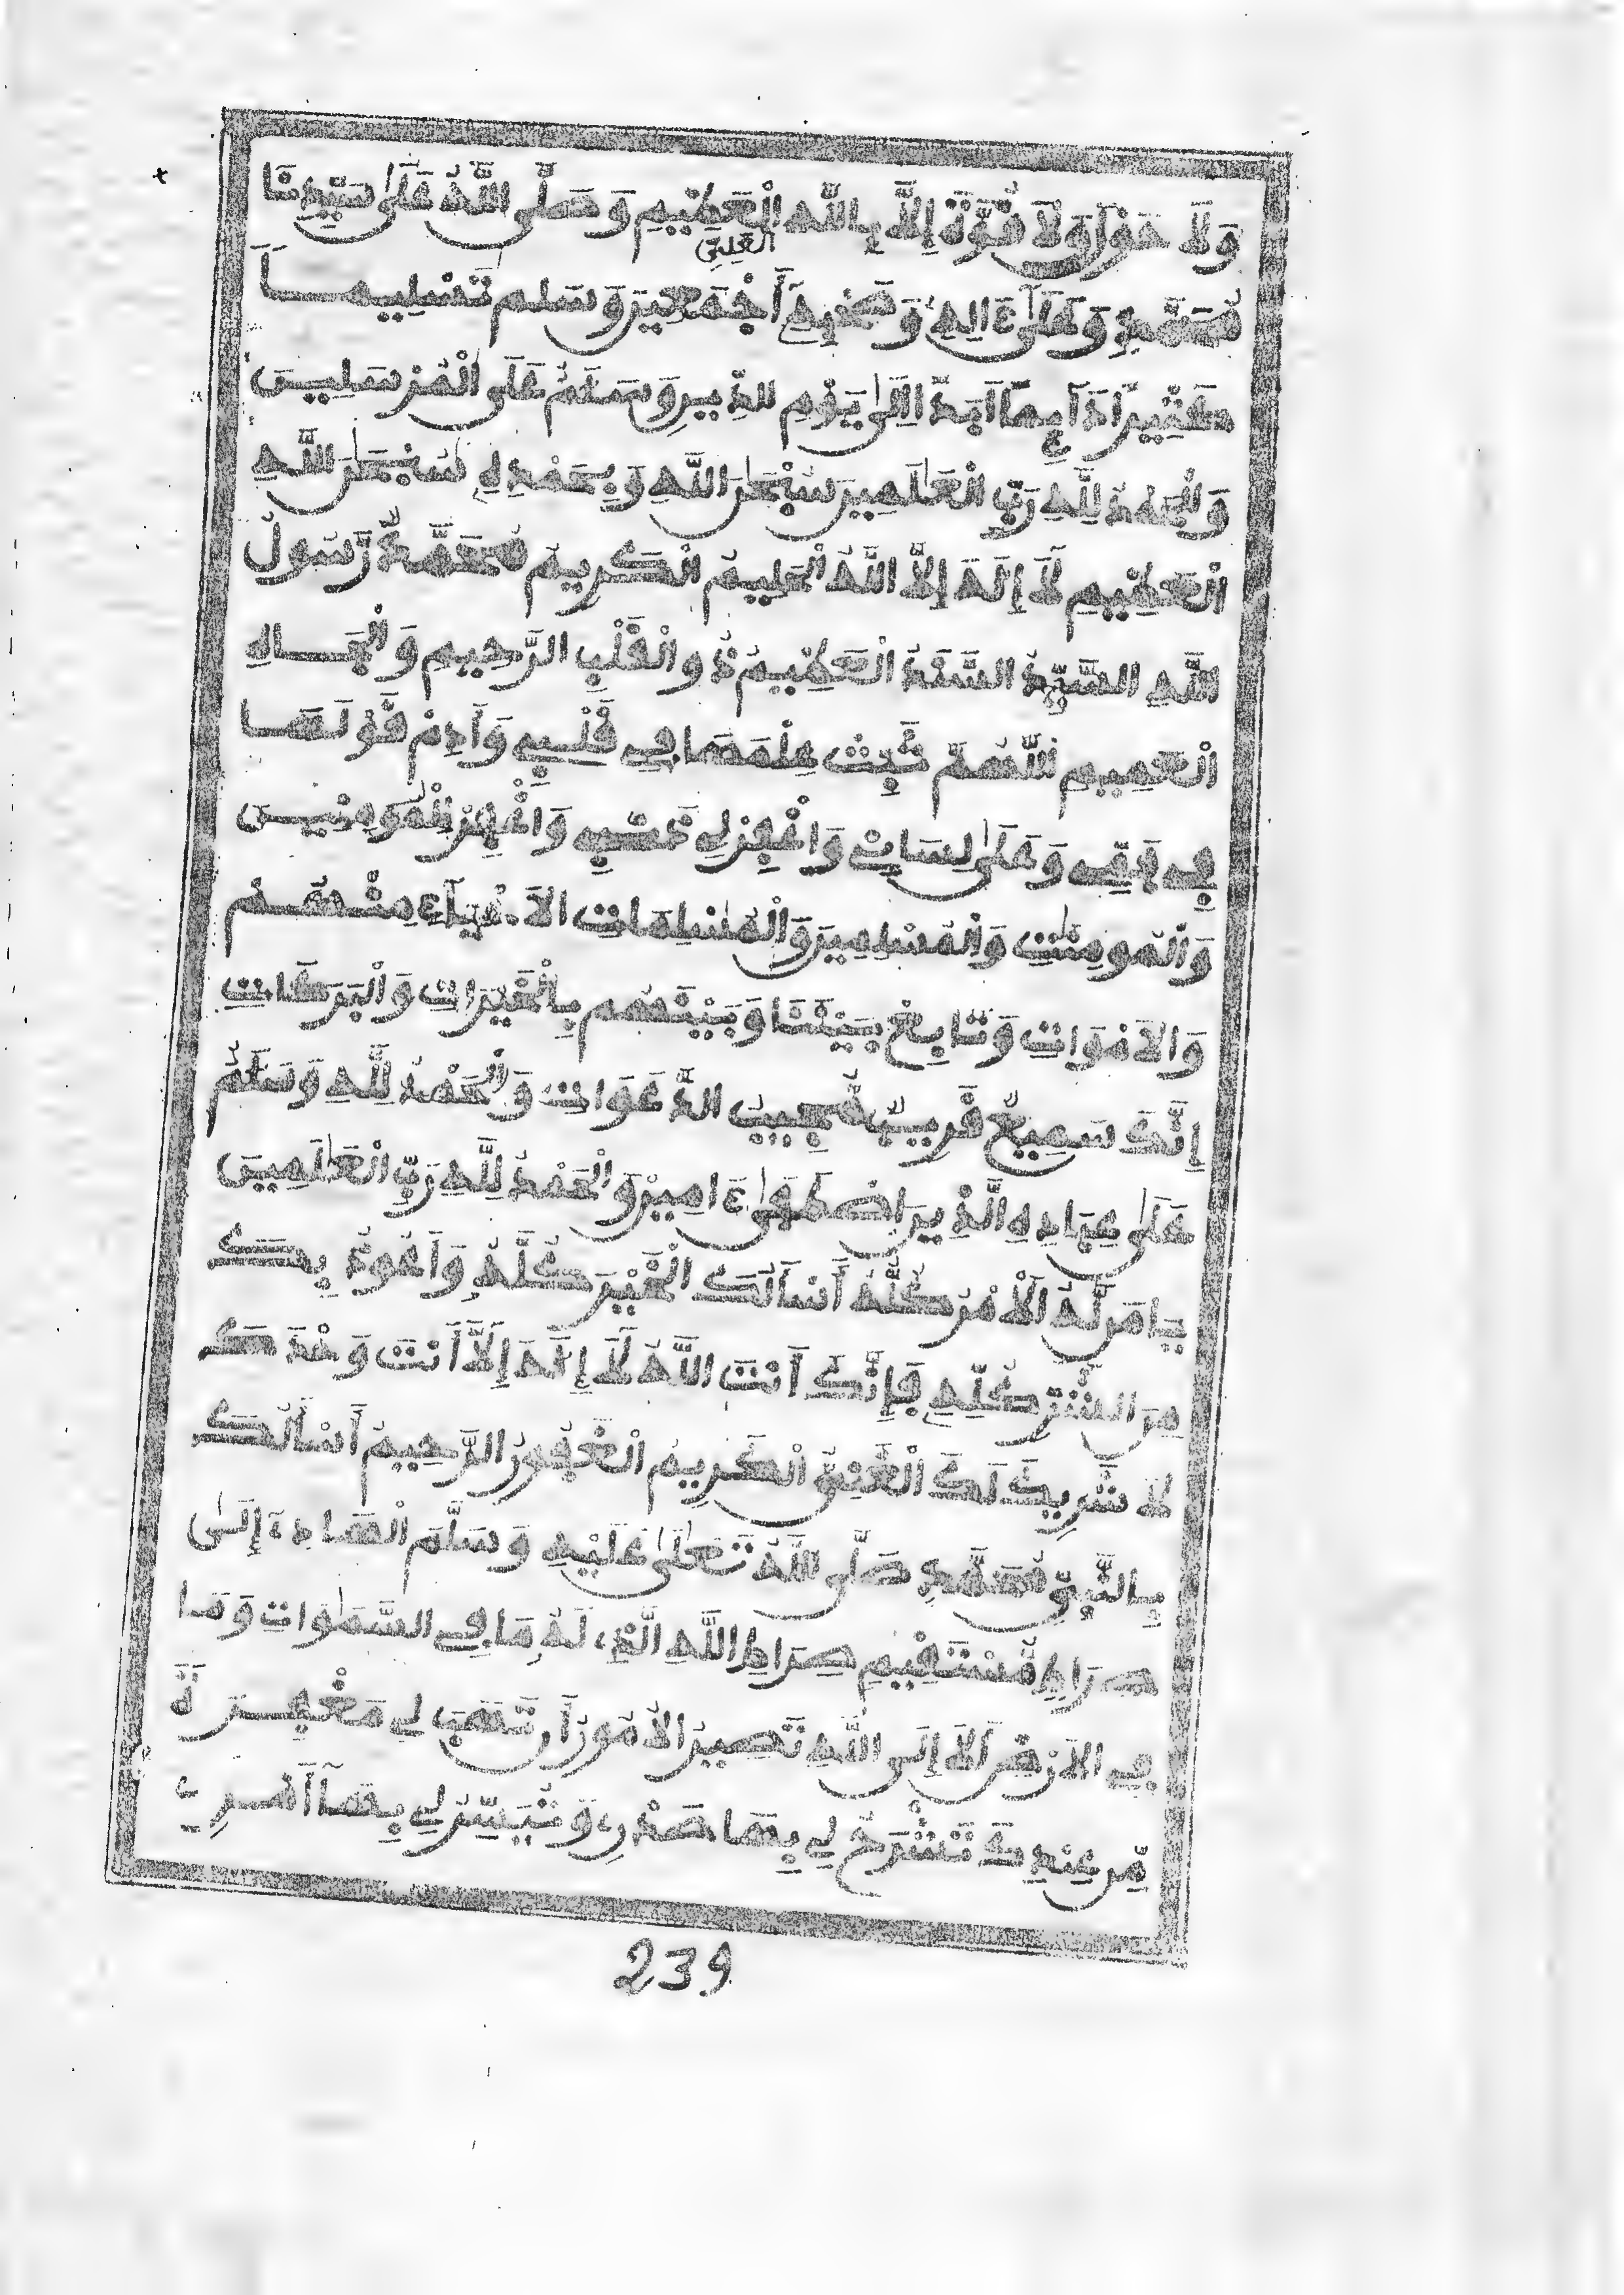 وَلَا حَوْلَ وَلَا قُوَّةَ إِلَّا بِاللَّهِ الْعَظِيمِ وَصَلَّى اللَّهُ عَلَىٰ سَيِّدِنَا
الْعَلِيِّ
مُحَمَّدٍ وَعَلَىٰ ءَالِهِ وَصَحْبِهِ أَجْمَعِينَ وَسَلِّم تَسْلِيمًا
كَثِيرًا دَآئِمًا أَبَدًا إِلَىٰ يَوْمِ الدِّينِ وَسَلَٰمٌ عَلَى الْمُرْسَلِينَ
وَالْحَمْدُ لِلَّهِ رَبِّ الْعَٰلَمِينَ سُبْحَٰنَ اللَّهِ وَبِحَمْدِهِ سُبْحَٰنَ اللَّهِ
الْعَظِيمِ لَآ إِلَٰهَ إِلَّا اللَّهُ الْحَلِيمُ الْكَرِيمُ مُحَمَّدٌ رَّسُولُ
اللَّهِ السَّيِّدُ السَّنَدُ الْعَظِيمُ ذُو الْقَلْبِ الرَّحِيمِ وَالْجَاهِ
الْعَمِيمِ اللَّهُمَّ ثَبِّتْ عِلْمَهَا فِي قَلْبِي وَأَدِمْ قَوْلَهَا
فِي فَمِي وَعَلَىٰ لِسَانِي وَاغْفِرْ لِي ذَنْبِي وَاغْفِرْ لِلْمُومِنِينَ
وَالْمُومِنَٰتِ وَالْمُسْلِمِينَ وَالْمُسْلِمَاتِ الَاحْيَآءِ مِنْهُمْ
وَالَامْوَاتِ وَتَابِعْ بَيْنَنَا وَبَيْنَهُم بِالْخَيْرَاتِ وَالْبَرَكَاتِ
إِنَّكَ سَمِيعٌ قَرِيبٌ مُّجِيبُ الدَّعَوَاتِ وَالْحَمْدُ لِلَّهِ وَسَلَٰمٌ
عَلَىٰ عِبَادِهِ الَّذِينَ اصْطَفَىٰ ءَامِينْ وَالْحَمْدُ لِلَّهِ رَبِّ الْعَٰلَمِينَ
يَا مَن لَّهُ الْأَمْرُ كُلُّهُ أَسْأَلُكَ الْخَيْرَ كُلَّهُ وَأَعُوذُ بِكَ
مِنَ الشَّرِّ كُلِّهِ فَإِنَّكَ أَنتَ اللَّهُ لَآ إِلَٰهَ إِلَّآ أَنتَ وَحْدَكَ
لَا شَرِيكَ لَكَ الْغَنِيُّ الْكَرِيمُ الْغَفُورُ الرَّحِيمُ أَسْأَلُكَ
بِالنَّبِيِّ مُحَمَّدٍ صَلَّى اللَّهُ تَعَٰلَىٰ عَلَيْهِ وَسَلَّمَ الْهَادِي إِلَىٰ
صِرَاطٍ مُّسْتَقِيمٍ صِرَاطِ اللَّهِ الَّذِي لَهُ مَا فِي السَّمَٰوَاتِ وَمَا
فِي الَارْضِ أَلَآ إِلَى اللَّهِ تَصِيرُ الُامُورُ أَن تَهَبَ لِي مَغْفِرَةً
مِّنْ عِندِكَ تَشْرَحُ لِي بِهَا صَدْرِي وَتُيَسِّرُ لِي بِهَآ أَمْرِي
239